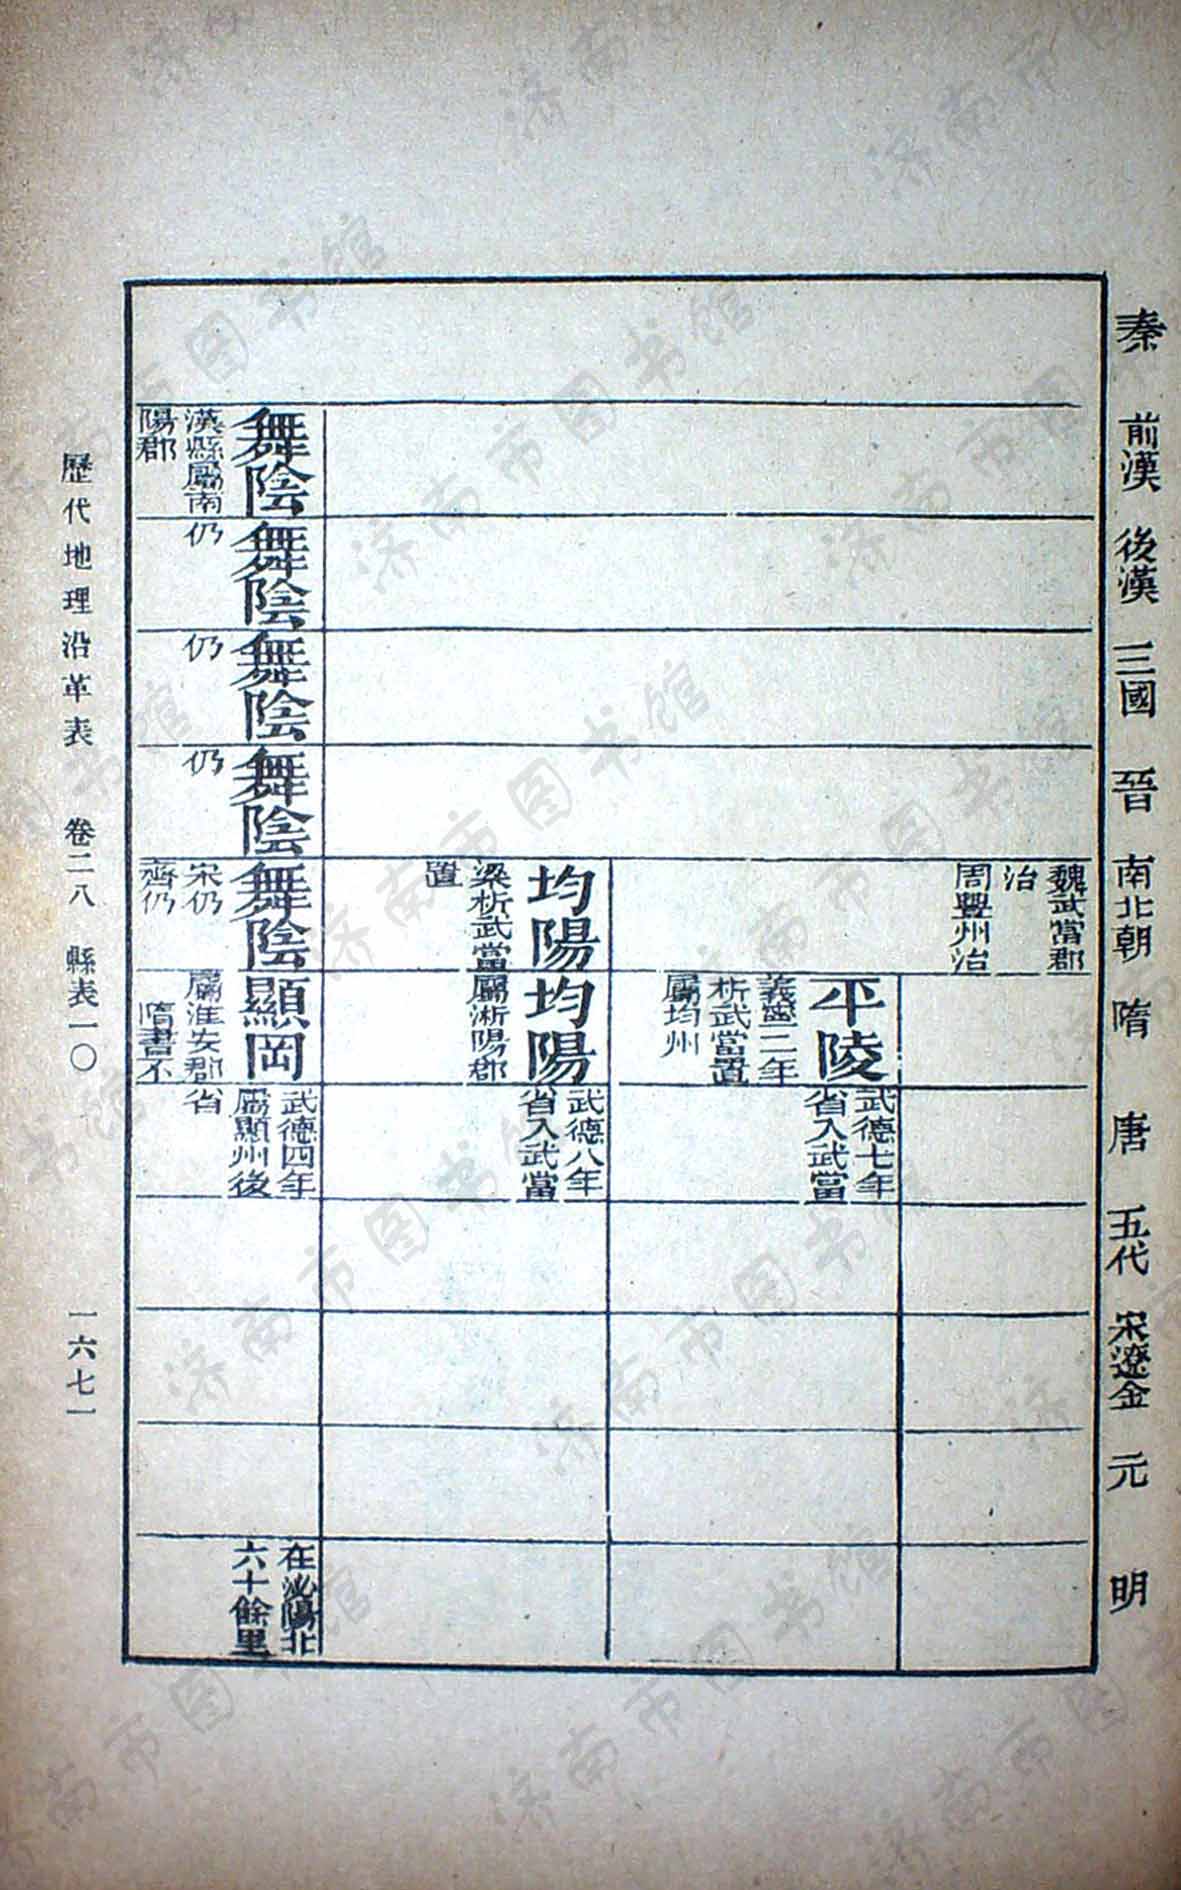 秦
前漢
後漢
三國
晉
南北朝
隋
唐
五代
宋遼金
元
明
魏武當郡
治
周豐州治
平陵
義寧二年
析武當置
屬均州
武德七年
省入武當
均陽
梁析武當
置
均陽
屬淅陽郡
武德八年
省入武當
舞陰
漢縣屬南
陽郡
舞陰
仍
舞陰
仍
舞陰
仍
舞陰
宋仍
齊仍
顯岡
屬淮安郡
隋書不
武德四年
屬顯州後
省
在泌陽北
六十餘里
歷代地理沿革表 卷二八 縣表一〇 一六七一
济南市图书馆